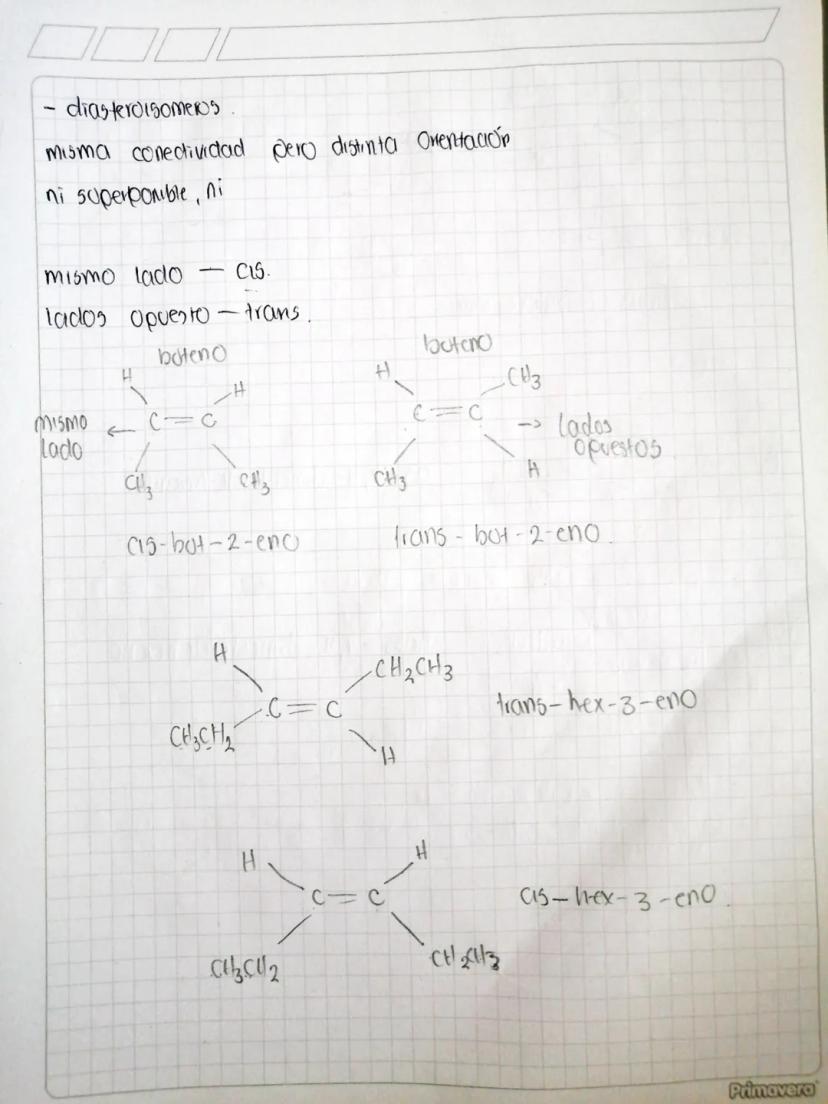 - diasteroisomeros.
misma conectividad pero distinta orientación
ni superponible, ni
mismo lado — cis.
lados opuesto — trans.
buteno
buteno
H
H
H
CH3
C = C
C = C
mismo
lado
→ lados
opuestos
CH3
CH3
CH3
H
cis-but-2-eno
trans-but-2-eno.
H
CH2CH3
C = C
trans-hex-3-eno
CH3CH2
H
H
H
C = C
cis-hex-3-eno.
CH3CH2
CH2CH3
Primavera